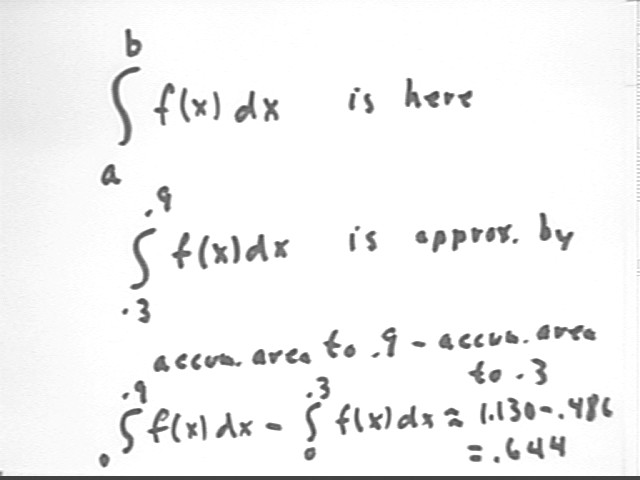 ∫ₐᵇ f(x) dx is here
∫.₃.⁹ f(x) dx is approx. by
accum. area to .9 - accum. area
to .3
∫₀.⁹ f(x) dx - ∫₀.³ f(x) dx ≈ 1.130-.486
= .644